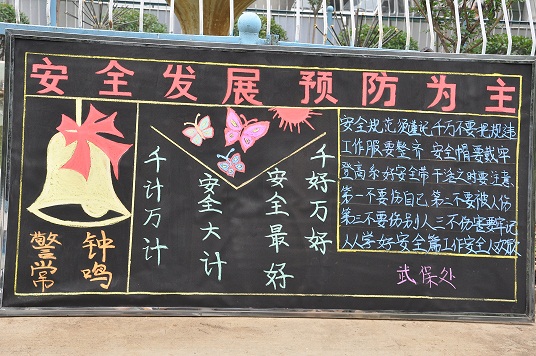 安全发展 预防为主
警钟
常鸣
千计万计
安全大计
安全最好
千好万好
安全规范须谨记千万不要把规违
工作服要整齐 安全帽要戴牢
登高系好安全带干活之时要注意
第一不要伤自己 第二不要被人伤
第三不要伤别人三不伤害要牢记
人人学好安全篇工作安全人欢
武保处